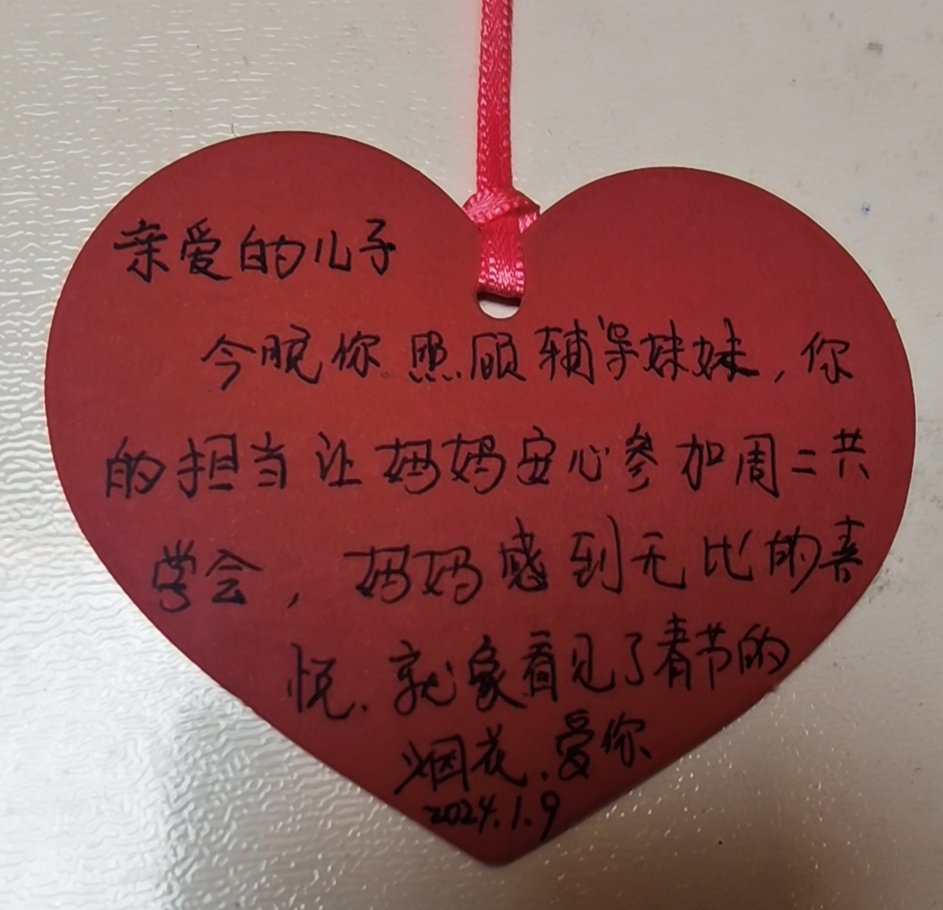 亲爱的儿子
今晚你照顾辅导妹妹，你
的担当让妈妈安心参加周二共
学会，妈妈感到无比的喜
悦.就象看见了春节的
烟花.爱你
2024.1.9